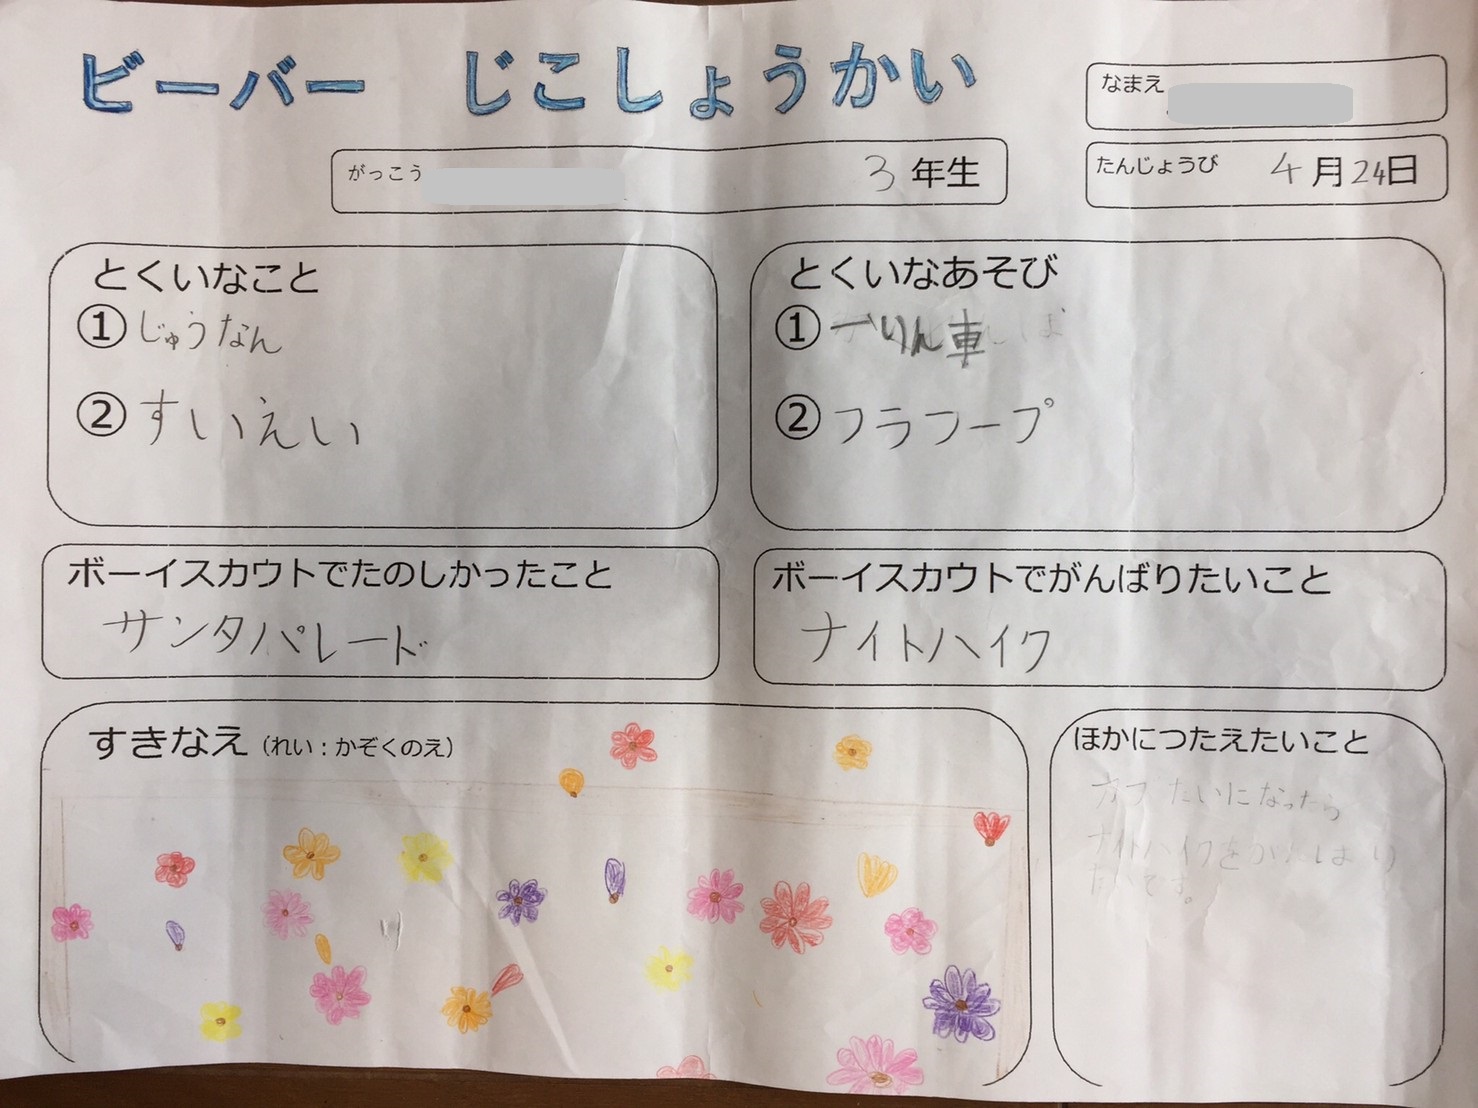 ビーバー じこしょうかい
なまえ
がっこう 3年生
たんじょうび 4月24日
とくいなこと
①じゅうなん
②すいえい
とくいなあそび
①一りん車
②フラフープ
ボーイスカウトでたのしかったこと
サンタパレード
ボーイスカウトでがんばりたいこと
ナイトハイク
すきなえ(れい:かぞくのえ)
ほかにつたえたいこと
カブたいになったら
ナイトハイクをがんばり
たいです。